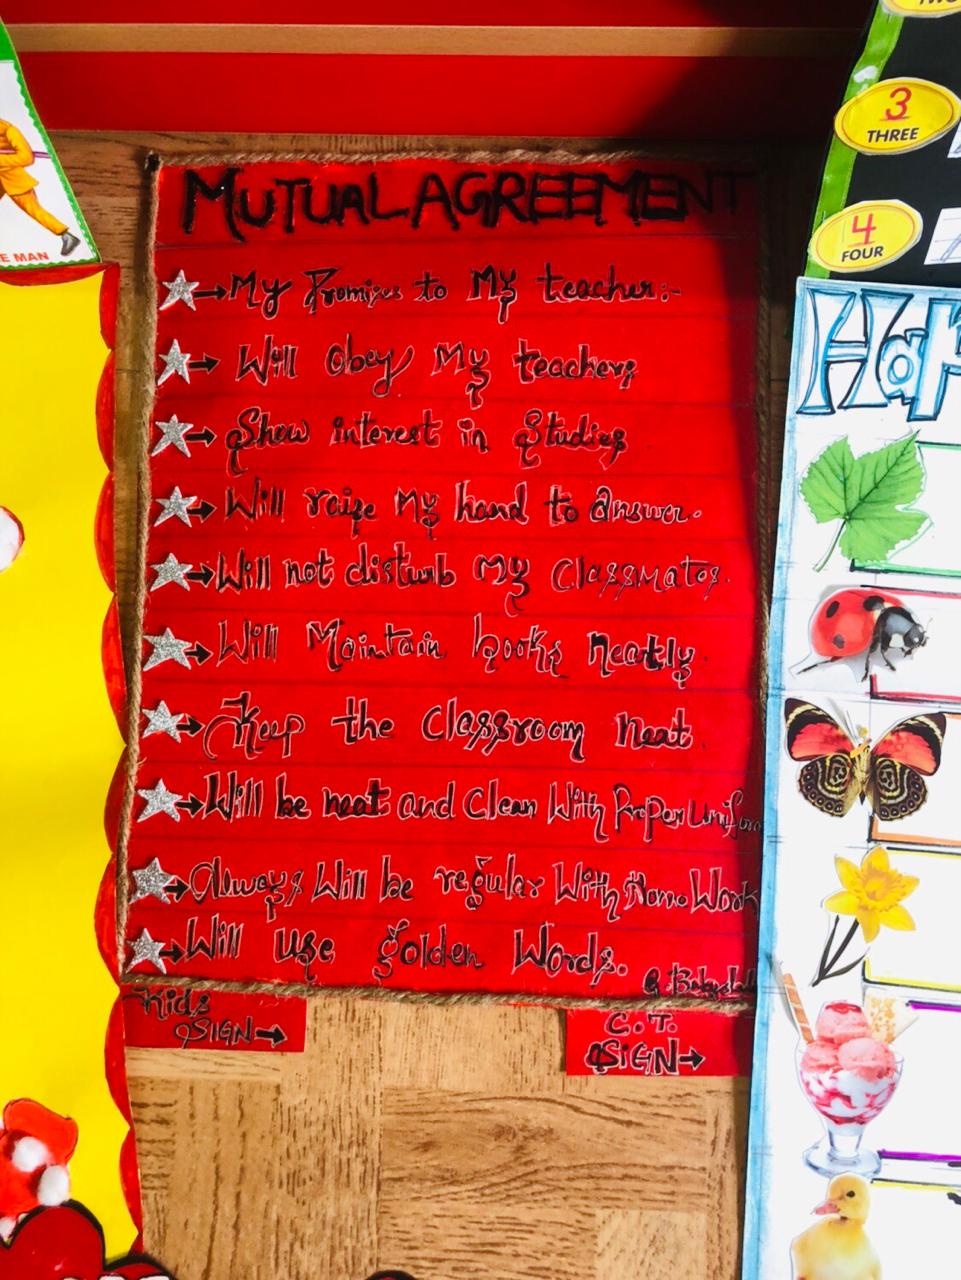 TWO
3
THREE
4
FOUR
E MAN
MUTUAL AGREEMENT
My Promises to My teacher:-
Will obey My teacher;
Show interest in Studies
Will raise My hand to answer.
Will not disturb My Classmates.
Will Maintain books neatly.
Keep the Classroom neat.
Will be neat and Clean With Proper Uniform
Always Will be regular With Home Work
Will use golden Words.
Kids
SIGN→
C.T.
SIGN→
Hap